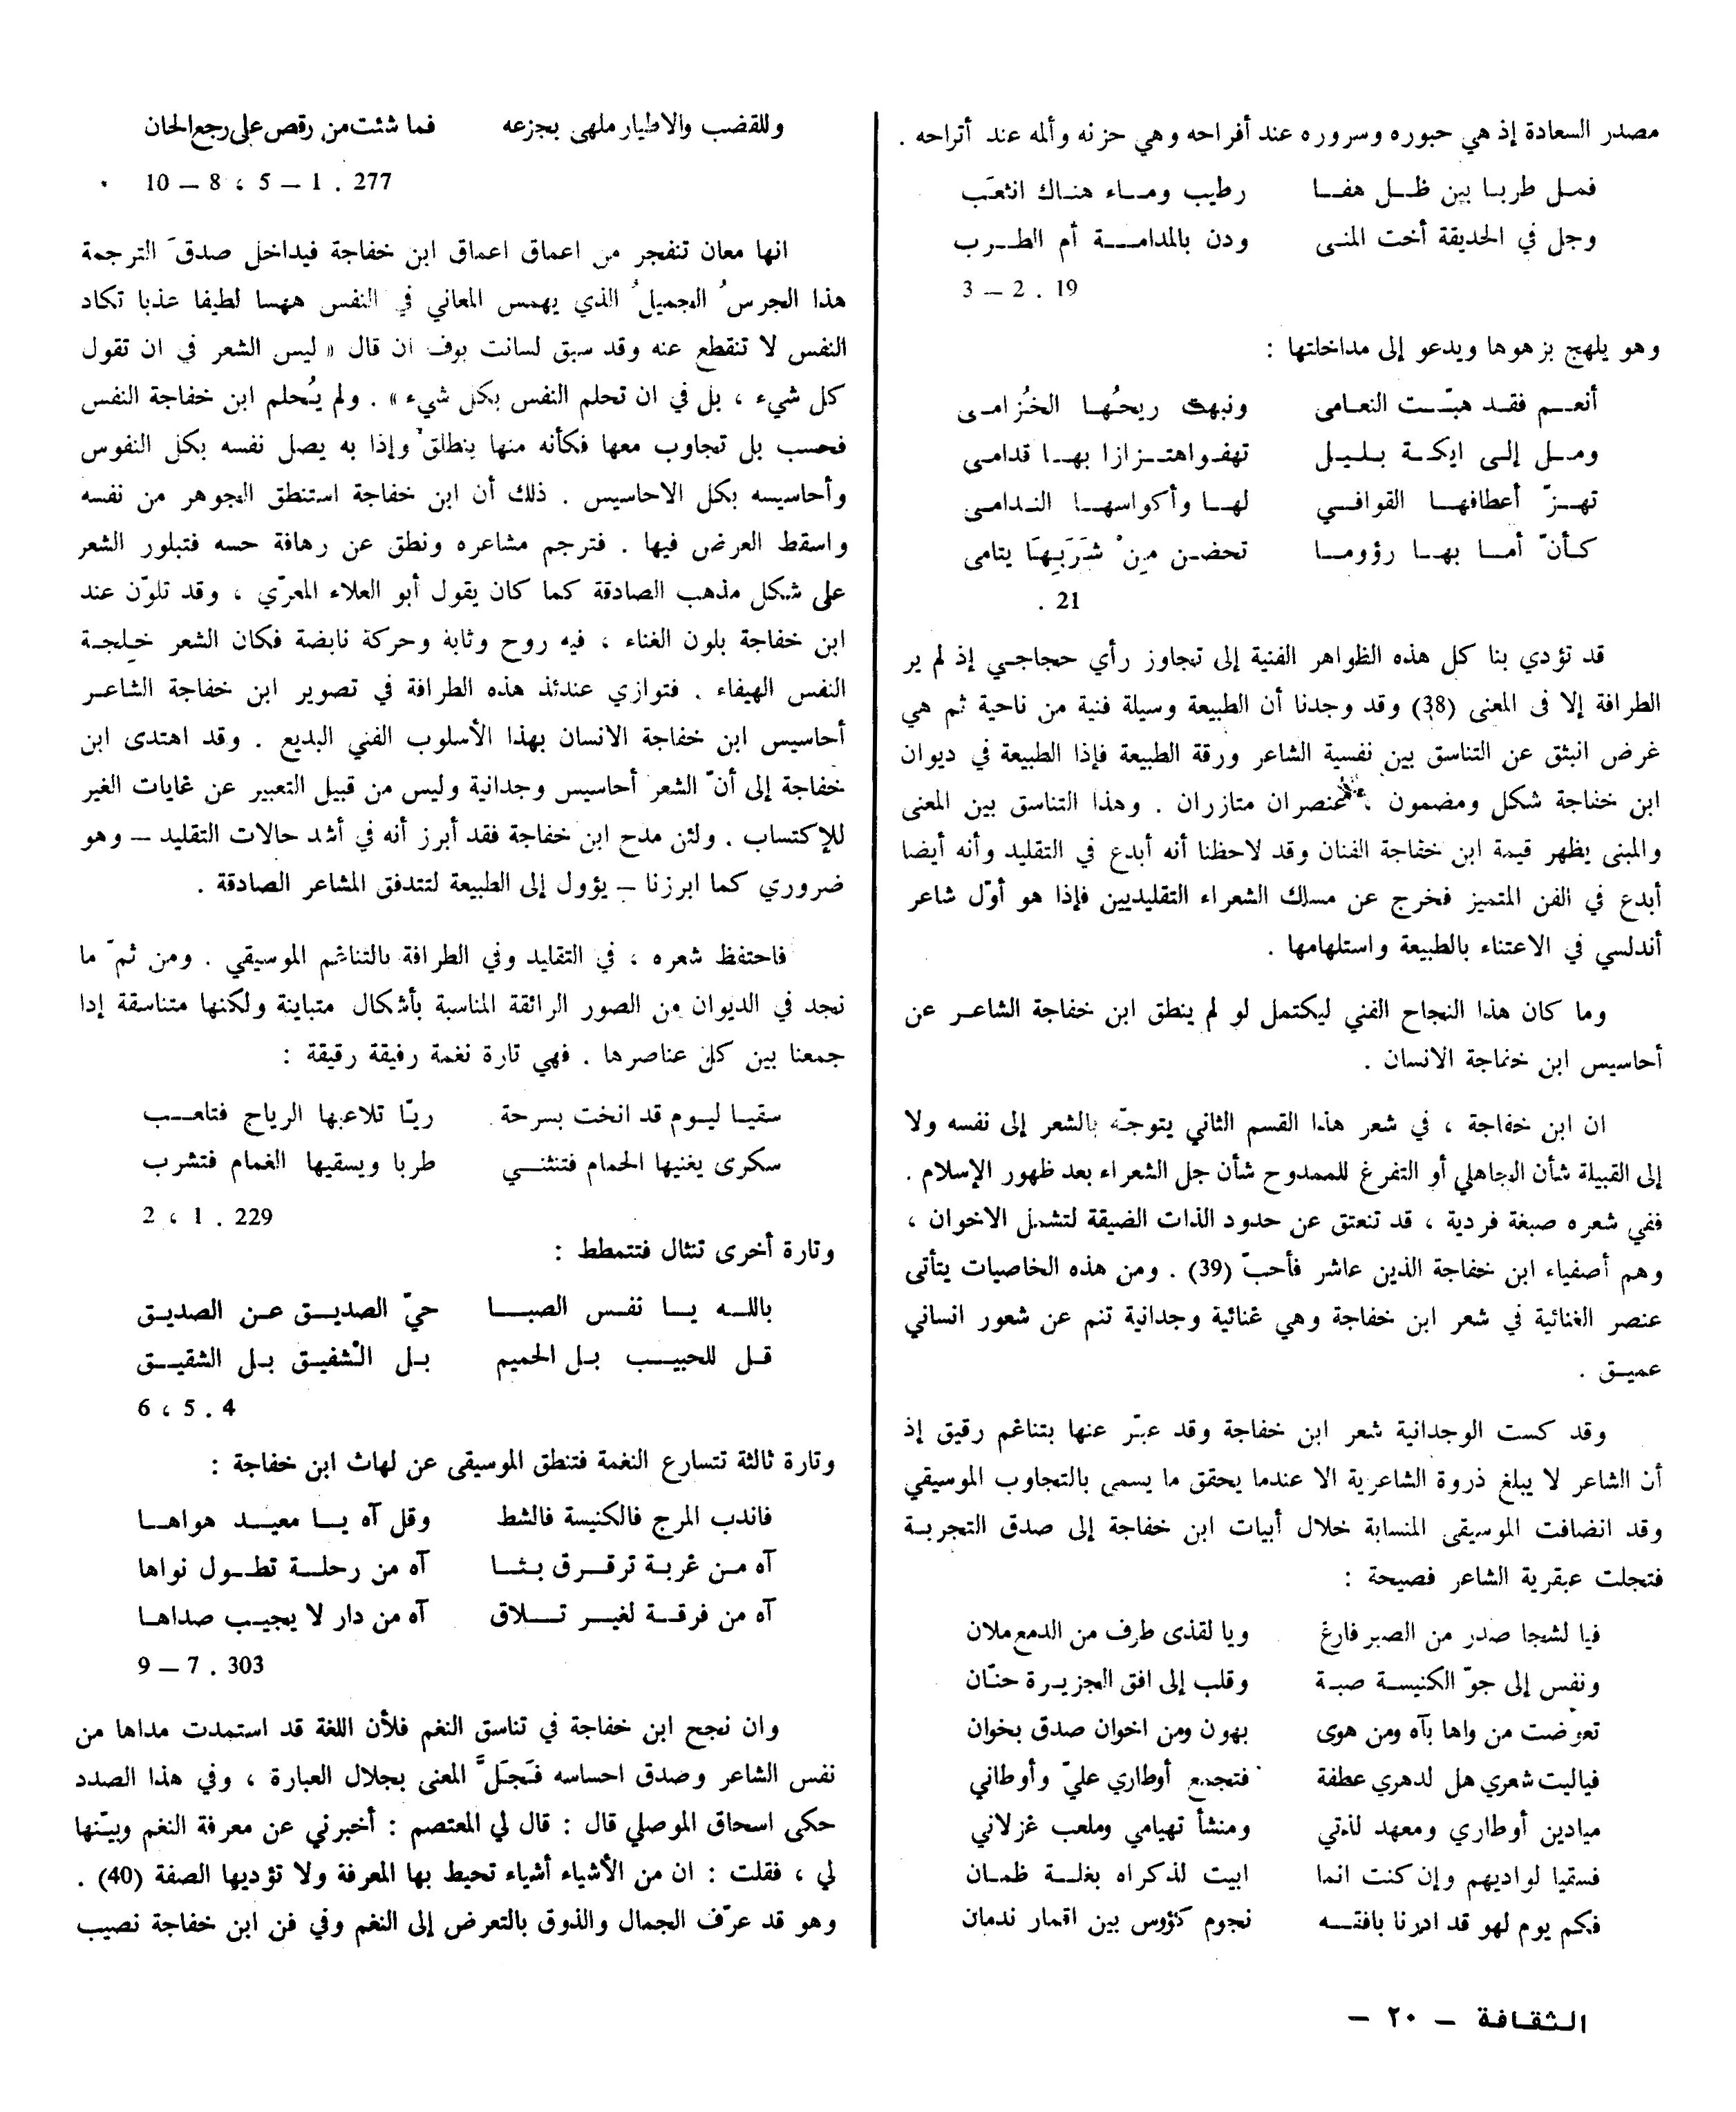 مصدر السعادة إذ هي حبوره وسروره عند أفراحه وهي حزنه وألمه عند أتراحه .
فمل طربا بين ظل هفا رطيب وماء هناك انثعب
وجل في الحديقة أخت المنى ودن بالمدامة أم الطرب
19 . 2 — 3
وهو يلهج بزهوها ويدعو إلى مداخلتها :
أنعم فقد هبّت النعامى ونبهت ريحُها الخُزامى
ومل إلى ايكة بليل تهفو اهتزازا بها قدامى
تهزّ أعطافها القوافي لها وأكواسها الندامى
كأنّ أما بها رؤوما تحضن مِنْ شَرَبِهَا يتامى
21 .
قد تؤدي بنا كل هذه الظواهر الفنية إلى تجاوز رأي حجاجي إذ لم ير
الطرافة إلا فى المعنى (38) وقد وجدنا أن الطبيعة وسيلة فنية من ناحية ثم هي
غرض انبثق عن التناسق بين نفسية الشاعر ورقة الطبيعة فإذا الطبيعة في ديوان
ابن خفاجة شكل ومضمون عنصران متازران . وهذا التناسق بين المعنى
والمبنى يظهر قيمة ابن خفاجة الفنان وقد لاحظنا أنه أبدع في التقليد وأنه أيضا
أبدع في الفن المتميز فخرج عن مسلك الشعراء التقليديين فإذا هو أوّل شاعر
أندلسي في الاعتناء بالطبيعة واستلهامها .
وما كان هذا النجاح الفني ليكتمل لو لم ينطق ابن خفاجة الشاعر عن
أحاسيس ابن خفاجة الانسان .
ان ابن خفاجة ، في شعر هذا القسم الثاني يتوجّه بالشعر إلى نفسه ولا
إلى القبيلة شأن الجاهلي أو التفرغ للممدوح شأن جل الشعراء بعد ظهور الإسلام .
ففي شعره صبغة فردية ، قد تنعتق عن حدود الذات الضيقة لتشمل الاخوان ،
وهم أصفياء ابن خفاجة الذين عاشر فأحبّ (39) . ومن هذه الخاصيات يتأتى
عنصر الغنائية في شعر ابن خفاجة وهي غنائية وجدانية تنم عن شعور انساني
عميق .
وقد كست الوجدانية شعر ابن خفاجة وقد عبّر عنها بتناغم رقيق إذ
أن الشاعر لا يبلغ ذروة الشاعرية الا عندما يحقق ما يسمى بالتجاوب الموسيقي
وقد انضافت الموسيقى المنسابة خلال أبيات ابن خفاجة إلى صدق التجربة
فتجلت عبقرية الشاعر فصيحة :
فيا لشجا صدر من الصبر فارغ ويا لقذى طرف من الدمع ملان
ونفس إلى جوّ الكنيسة صبة وقلب إلى افق الجزيرة حنّان
تعوضت من واها بآه ومن هوى بهون ومن اخوان صدق بخوان
فياليت شعري هل لدهري عطفة فتجمع أوطاري عليّ وأوطاني
ميادين أوطاري ومعهد لذتي ومنشأ تهيامي وملعب غزلاني
فسقيا لواديهم وإن كنت انما ابيت لذكراه بغلة ظمان
فكم يوم لهو قد ادرنا بافقه نجوم كؤوس بين اقمار ندمان
وللقضب والاطيار ملهى بجزعه فما شئت من رقص على رجع الحان
277 . 1 — 5 ، 8 — 10 .
انها معان تنفجر من اعماق اعماق ابن خفاجة فيداخل صدقَ الترجمة
هذا الجرسُ الجميلُ الذي يهمس المعاني في النفس همسا لطيفا عذبا تكاد
النفس لا تنقطع عنه وقد سبق لسانت بوف ان قال « ليس الشعر في ان تقول
كل شيء ، بل في ان تحلم النفس بكل شيء » . ولم يُحلم ابن خفاجة النفس
فحسب بل تجاوب معها فكأنه منها ينطلق وإذا به يصل نفسه بكل النفوس
وأحاسيسه بكل الاحاسيس . ذلك أن ابن خفاجة استنطق الجوهر من نفسه
واسقط العرض فيها . فترجم مشاعره ونطق عن رهافة حسه فتبلور الشعر
على شكل مذهب الصادقة كما كان يقول أبو العلاء المعرّي ، وقد تلوّن عند
ابن خفاجة بلون الغناء ، فيه روح وثابة وحركة نابضة فكان الشعر خيلجة
النفس الهيفاء . فتوازي عندئذ هذه الطرافة في تصوير ابن خفاجة الشاعر
أحاسيس ابن خفاجة الانسان بهذا الأسلوب الفني البديع . وقد اهتدى ابن
خفاجة إلى أنّ الشعر أحاسيس وجدانية وليس من قبيل التعبير عن غايات الغير
للإكتساب . ولئن مدح ابن خفاجة فقد أبرز أنه في أشد حالات التقليد — وهو
ضروري كما ابرزنا — يؤول إلى الطبيعة لتتدفق المشاعر الصادقة .
فاحتفظ شعره ، في التقليد وفي الطرافة بالتناغم الموسيقي . ومن ثمّ ما
نجد في الديوان من الصور الرائقة المناسبة بأشكال متباينة ولكنها متناسقة إدا
جمعنا بين كل عناصرها . فهي تارة نغمة رفيقة رقيقة :
سقيا ليوم قد انخت بسرحة ريّا تلاعبها الرياج فتاعب
سكرى يغنيها الحمام فتنثني طربا ويسقيها الغمام فتشرب
229 . 1 ، 2
وتارة أخرى تنثال فتتمطط :
بالله يا نفس الصبا حيّ الصديق عن الصديق
قل للحبيب بل الحميم بل الشفيق بل الشقيق
4 . 5 ، 6
وتارة ثالثة تتسارع النغمة فتنطق الموسيقى عن لهاث ابن خفاجة :
فاندب المرج فالكنيسة فالشط وقل آه يا معيد هواها
آه من غربة ترقرق بثا آه من رحلة تطول نواها
آه من فرقة لغير تلاق آه من دار لا يجيب صداها
303 . 7 — 9
وان نجح ابن خفاجة في تناسق النغم فلأن اللغة قد استمدت مداها من
نفس الشاعر وصدق احساسه فَجَلَّ المعنى بجلال العبارة ، وفي هذا الصدد
حكى اسحاق الموصلي قال : قال لي المعتصم : أخبرني عن معرفة النغم وبيّنها
لي ، فقلت : ان من الأشياء أشياء تحيط بها المعرفة ولا تؤديها الصفة (40) .
وهو قد عرّف الجمال والذوق بالتعرض إلى النغم وفي فن ابن خفاجة نصيب
الثقافة — ٢٠ —